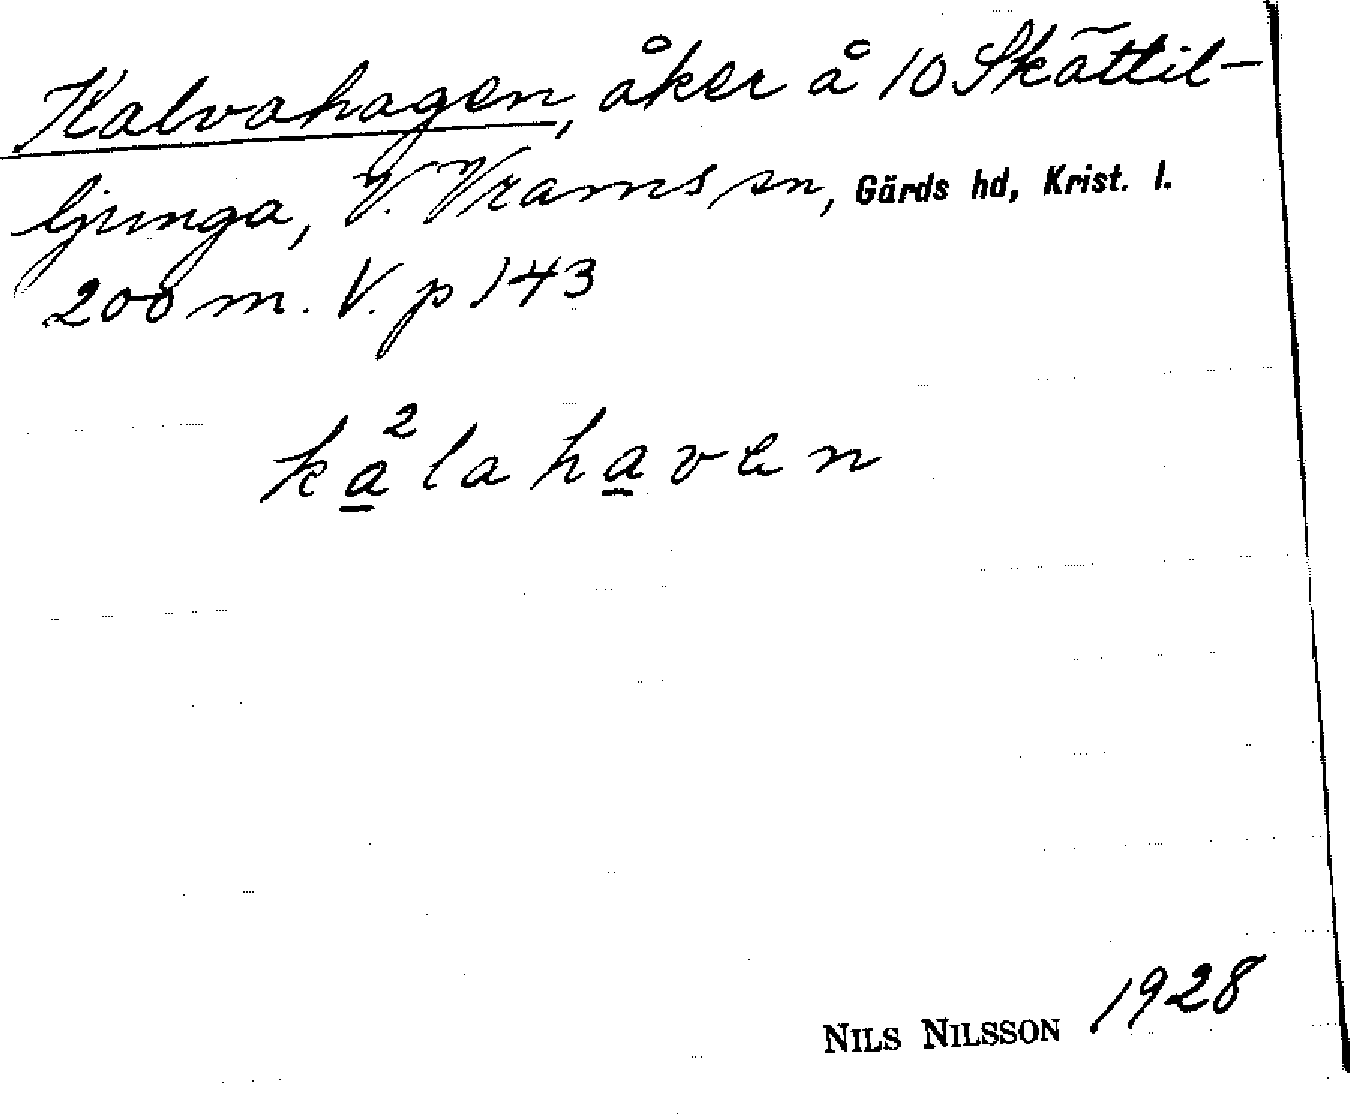 Kalvahagen, åker å 10 Skättil-
ljunga, V. Vrams sn, Gärds hd, Krist. l.
200 m. V. p 143
ka̲²laha̲ven
NILS NILSSON 1928